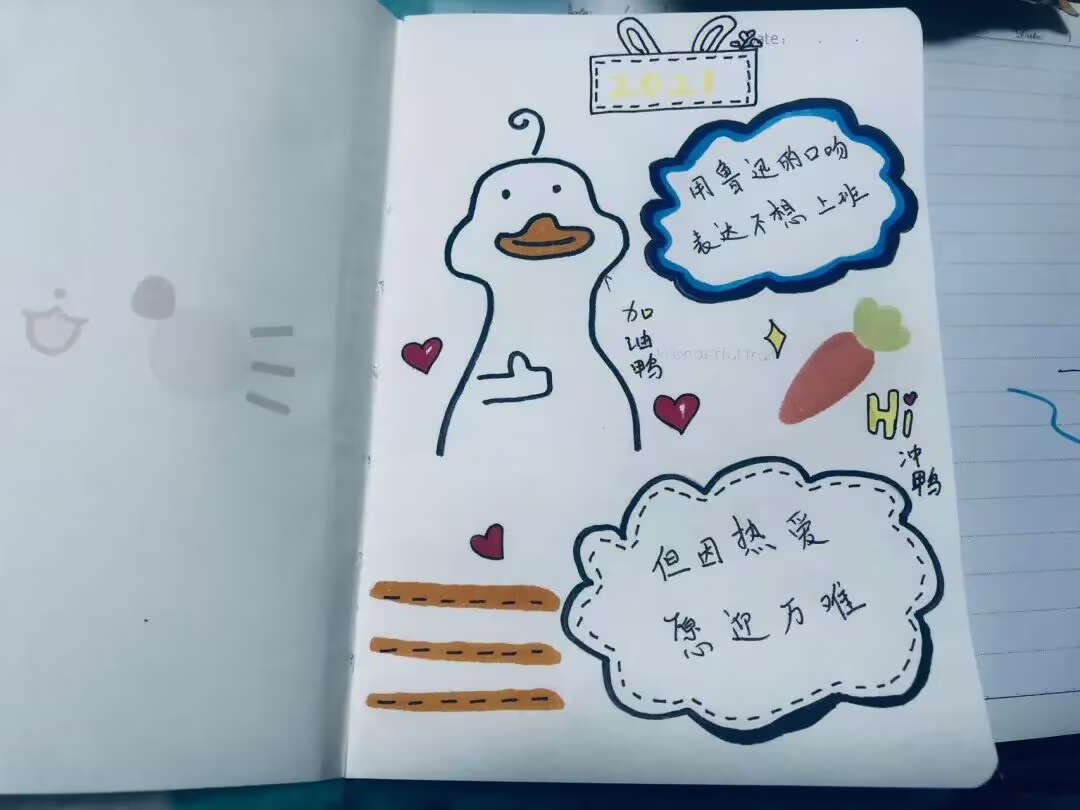 Date:
2021
用鲁迅的口吻
表达不想上班
加油鸭
Hi
冲鸭
但因热爱
愿迎万难